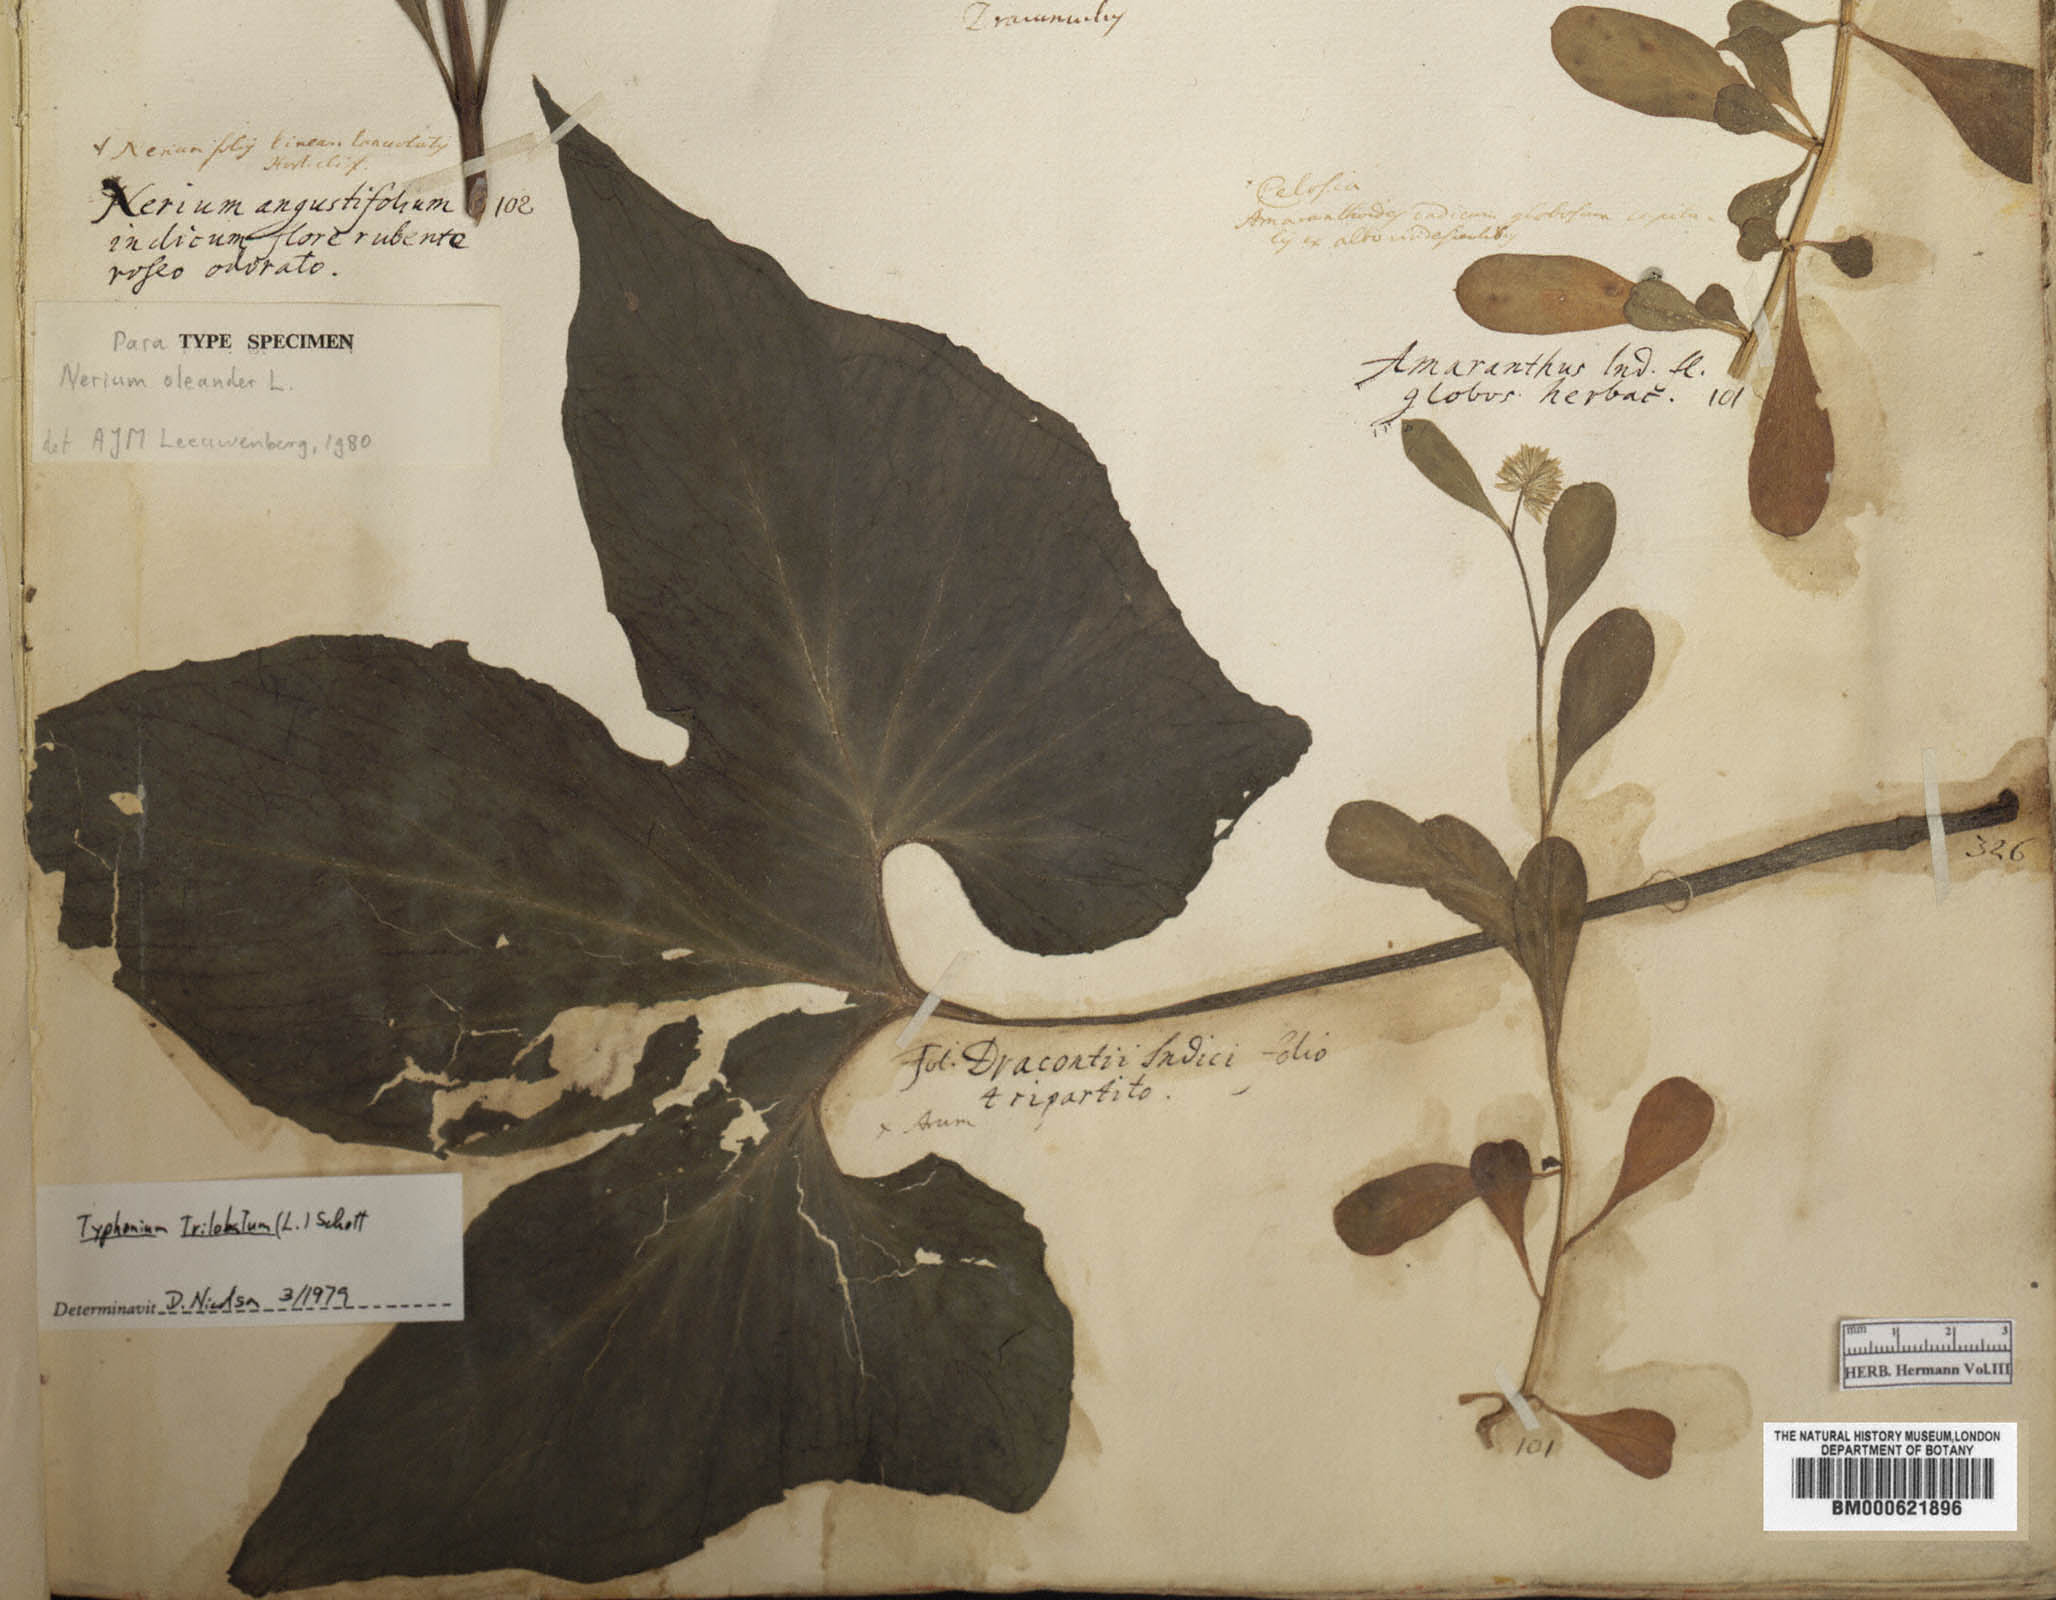 Dracunculus
+ Nerium folijs linear. lanceolatis
Hort. clif.
Nerium angustifolium 102
indicum flore rubente
roseo odorato.
Para TYPE SPECIMEN
Nerium oleander L.
det AJM Leeuwenberg, 1980
Celosia
Amaranthoides indicum globosum capitu-
lis ex albo
Amaranthus Ind. fl.
globos. herbac. 101
326
fol. Dracontii Indici folio
tripartito.
x Arum
Typhonium trilobatum (L.) Schott
Determinavit D. Nicolson 3/1979
101
mm 1 2 3
HERB. Hermann Vol.III
THE NATURAL HISTORY MUSEUM,LONDON
DEPARTMENT OF BOTANY
BM000621896